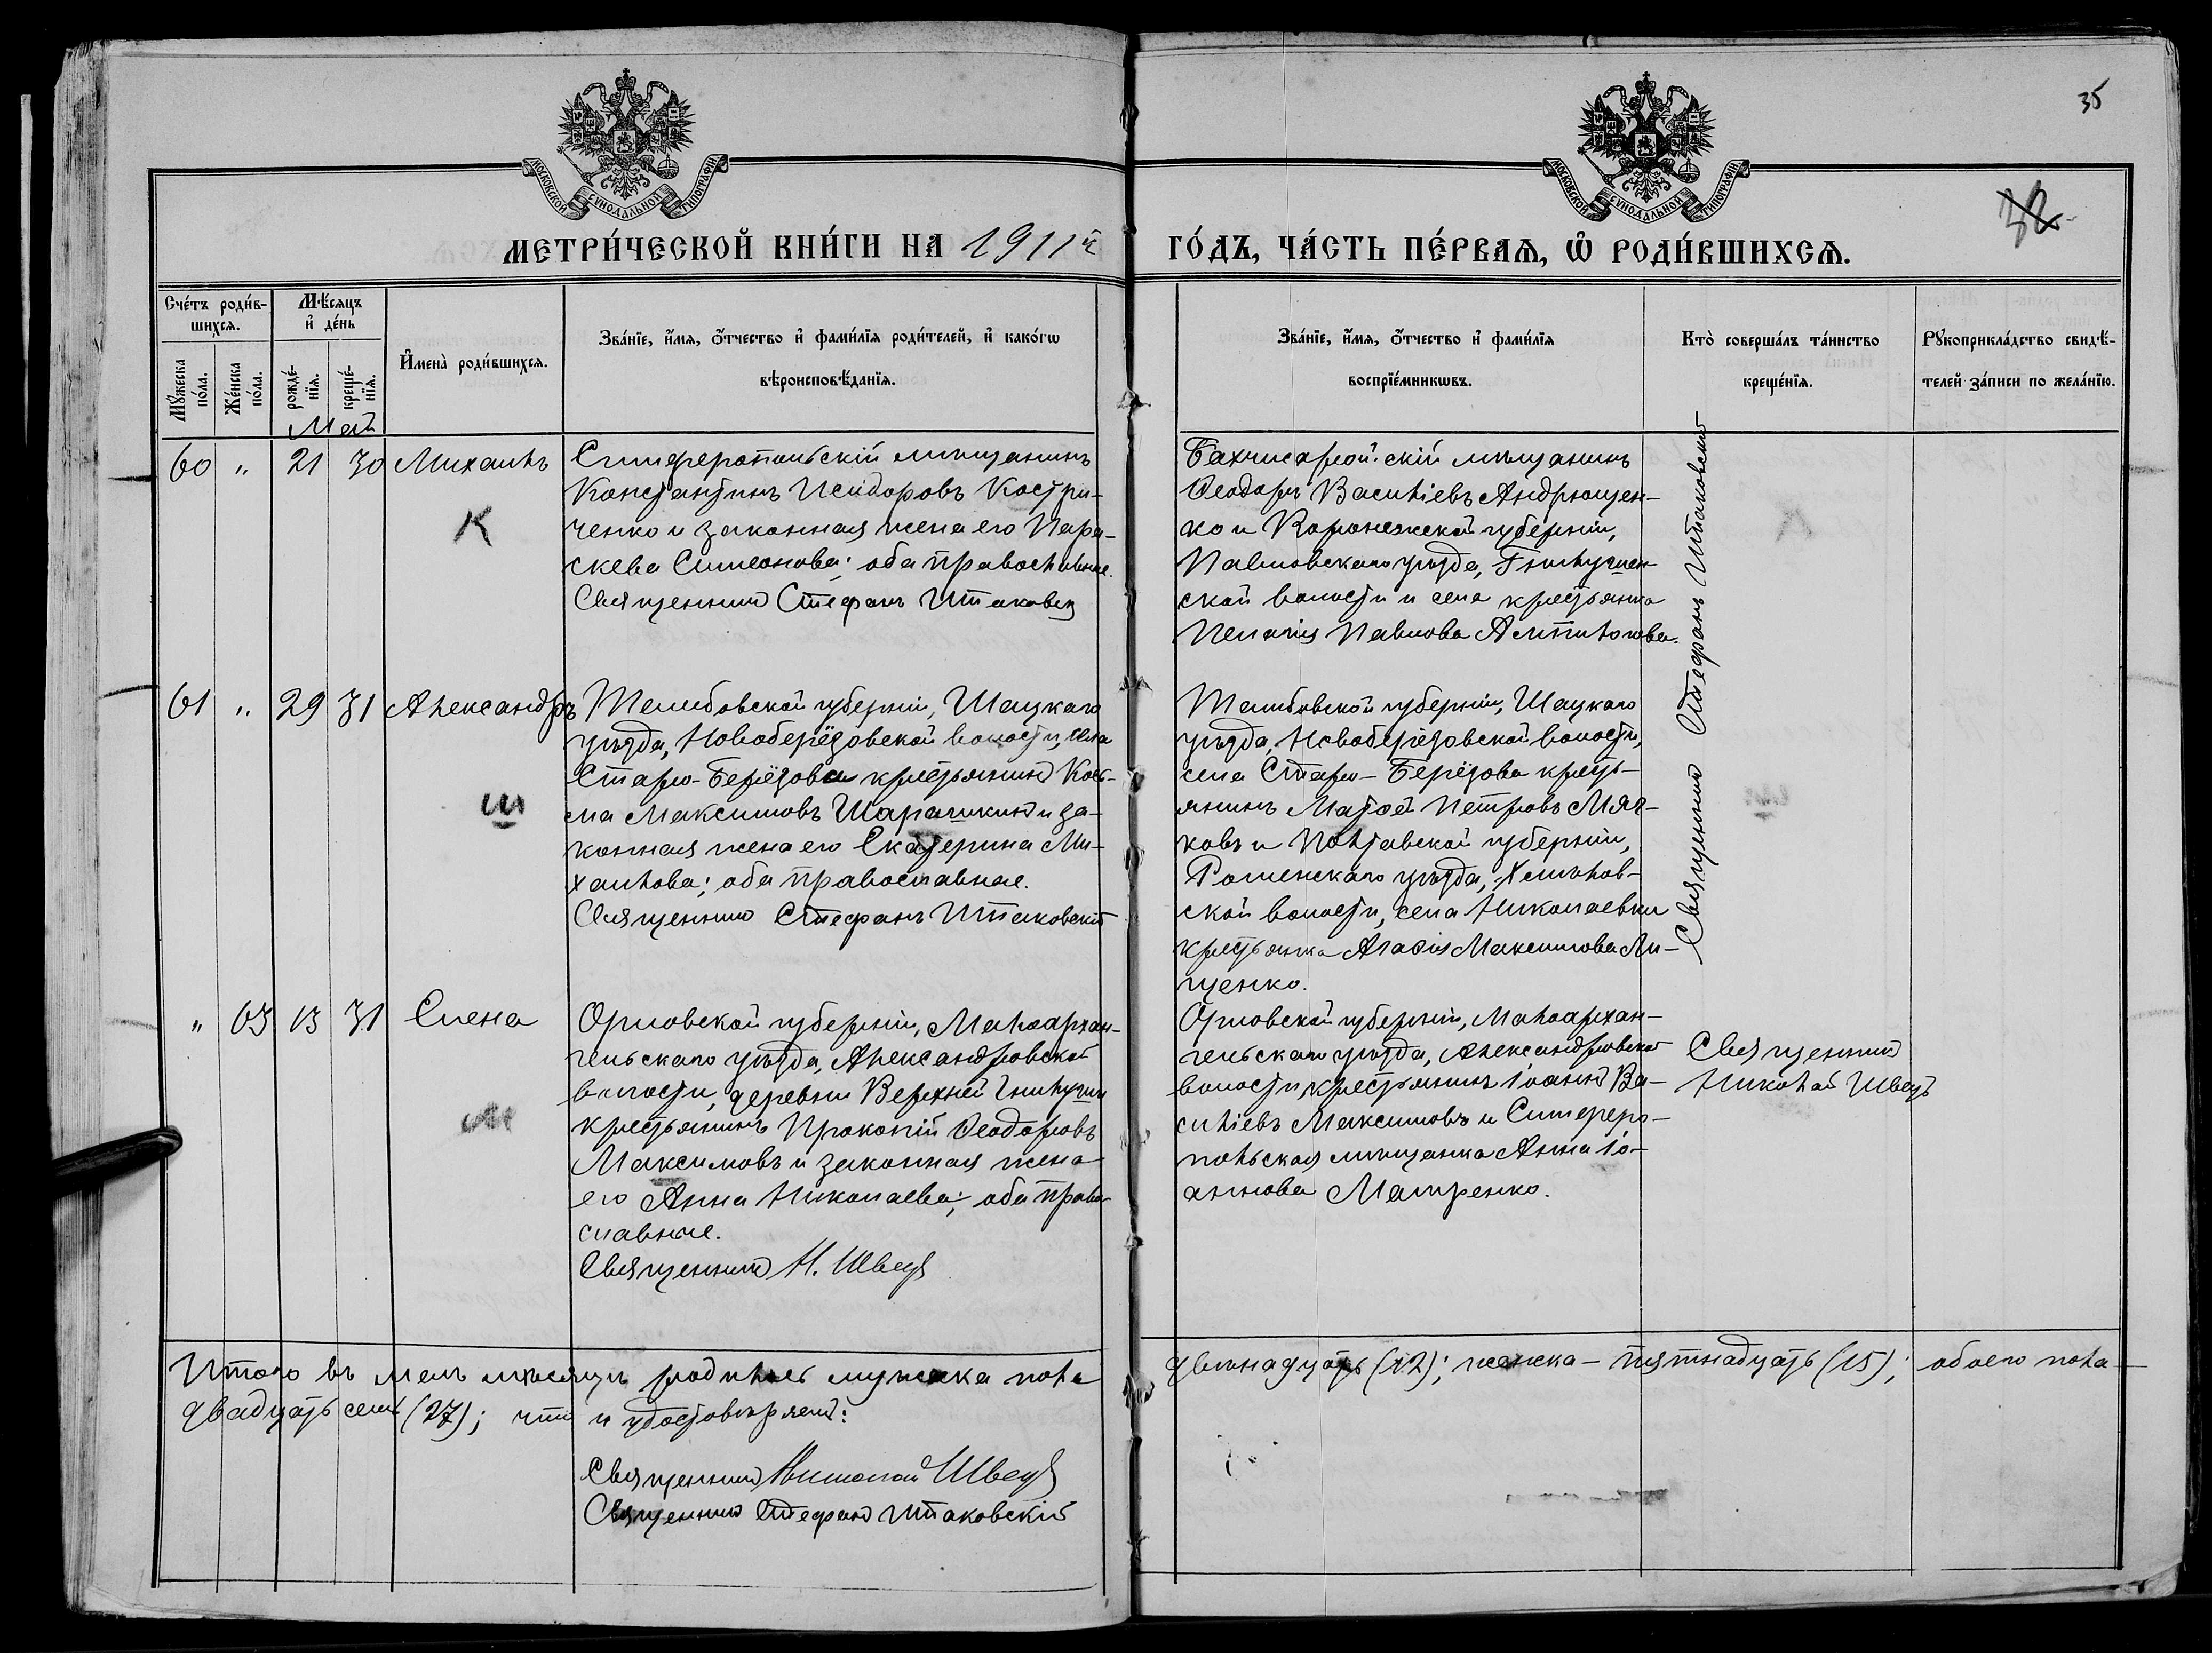 35
32
МОСКОВСКОЙ СѴНОДАЛЬНОЙ ТИПОГРАФІИ
МОСКОВСКОЙ СѴНОДАЛЬНОЙ ТИПОГРАФІИ
МЕТРИ́ЧЕСКОЙ КНИ́ГИ НА 1911й
ГО́ДЪ, ЧА́СТЬ ПЕ́РВАѦ, Ѡ҆ РОДИ́ВШИХСѦ.
Сче́тъ роди́в-
шихсѧ.
Мꙋ́жеска по́ла.
Же́нска по́ла.
Мѣ́сѧцъ
и҆ де́нь
рожде́-
нїѧ.
креще́-
нїѧ.
Май
И҆мена̀ роди́вшихсѧ.
Зва́нїе, и҆́мѧ, ѻ҆́тчество и҆ фами́лїѧ роди́телей, и҆ како́гѡ
вѣроисповѣ́данїѧ.
Зва́нїе, и҆́мѧ, ѻ҆́тчество и҆ фами́лїѧ
воспрїе́мникѡвъ.
Кто̀ соверша́лъ та́инство
креще́нїѧ.
Рꙋкоприкла́дство свидѣ́-
телей за́писи по жела́нїю.
60 " 21 30 Михаилъ
К
Симферопольскій мѣщанинъ
Константинъ Исидоровъ Костри-
ченко и законная жена его Пара-
скева Симеонова; оба православные.
Священникъ Стефанъ Штаковскій
Бахчисарайскій мѣщанинъ
Ѳеодоръ Василіевъ Андрющен-
ко и Воронежской губерніи,
Павловскаго уѣзда,
ской волости и села крестьянка
Пелагія Павлова
Священникъ Стефанъ Штаковскій
61 " 29 31 Александръ
Ш
Тамбовской губерніи, Шацкаго
уѣзда, Новоберёзовской волости, села
Старо-Берёзова крестьянинъ Кос-
ма Максимовъ Шарашкинъ и за-
конная жена его Екатерина Ми-
хаилова; оба православные.
Священникъ Стефанъ Штаковскій
Тамбовской губерніи, Шацкаго
уѣзда, Новоберёзовской волости,
села Старо-Берёзова кресть-
янинъ Матѳей Петровъ Мяч-
ковъ и Полтавской губерніи,
Роменскаго уѣзда, Хмѣлов-
ской волости, села Николаевки
крестьянка Агаѳія Максимова Ли-
щенко.
" 63 13 31 Елена
М
Орловской губерніи, Малоархан-
гельскаго уѣзда, Александровской
волости, деревни Верхней Гнилуши
крестьянинъ Прокопій Ѳеодоровъ
Максимовъ и законная жена
его Анна Николаева; оба право-
славные.
Священникъ Н. Швецъ
Орловской губерніи, Малоархан-
гельскаго уѣзда, Александровской
волости, крестьянинъ Іоаннъ Ва-
силіевъ Максимовъ и Симферо-
польская мѣщанка Анна Іо-
аннова
Священникъ
Николай Швецъ
Итого въ маѣ мѣсяцѣ родилось мужска пола
двѣнадцать (12); женска - пятнадцать (15); обоего пола -
двадцать семь (27); что и удостовѣряемъ:
Священникъ Николай Швецъ
Священникъ Стефанъ Штаковскій